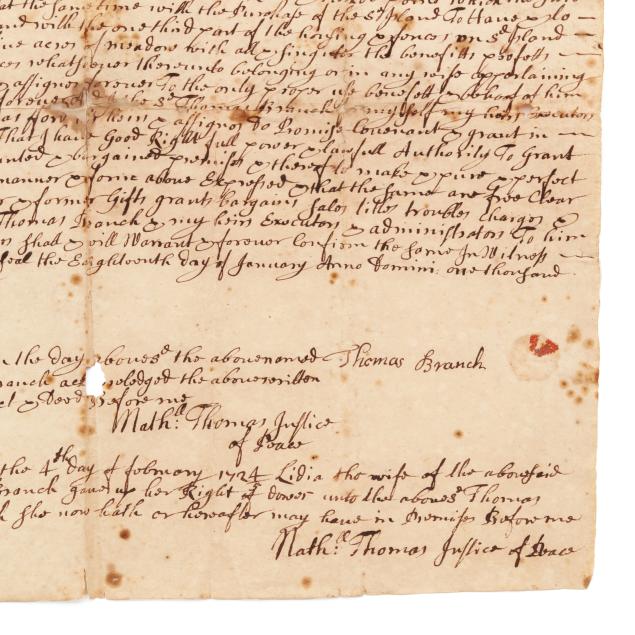 at the same time with the Purchase of the sd Island To Have & to —
and with the one third part of the housing & fences on sd Island —
five acres of meadow with all & singuler the benefitts profetts —
ces whatsoever thereunto belonging or in any wise appertaining
assignes forever To the only proper use benefitt & behoof of him
forever the sd Thomas Branch my self my heirs Executors
as for them & assignes Do Promise Covenant & grant in —
That I have Good Right full power & lawfull Authority To Grant
anted & bargained premises & thereof to make a pure & perfect
manner & forme above Expressed & that the same are free Clear
& former Gifts grants bargains sales titles troubles charges &
Thomas Branch & my heirs Executors & administrators To him
ns shall & will Warrant & forever Confirm the same In Witness —
seal the Eighteenth day of January Anno Domini: one thousand
the day abovesd the abovenamed Thomas Branch
ranch acknowledged the abovewritten
ct & Deed Before me
Nathll Thomas Justice
of Peace
the 4th day of febrnary 1724 Lidia the wife of the abovesaid
Branch gave up her Right of dower unto the aboves Thomas
h she now hath or hereafter may have in Premises Before me
Nathll Thomas Justice of Peace